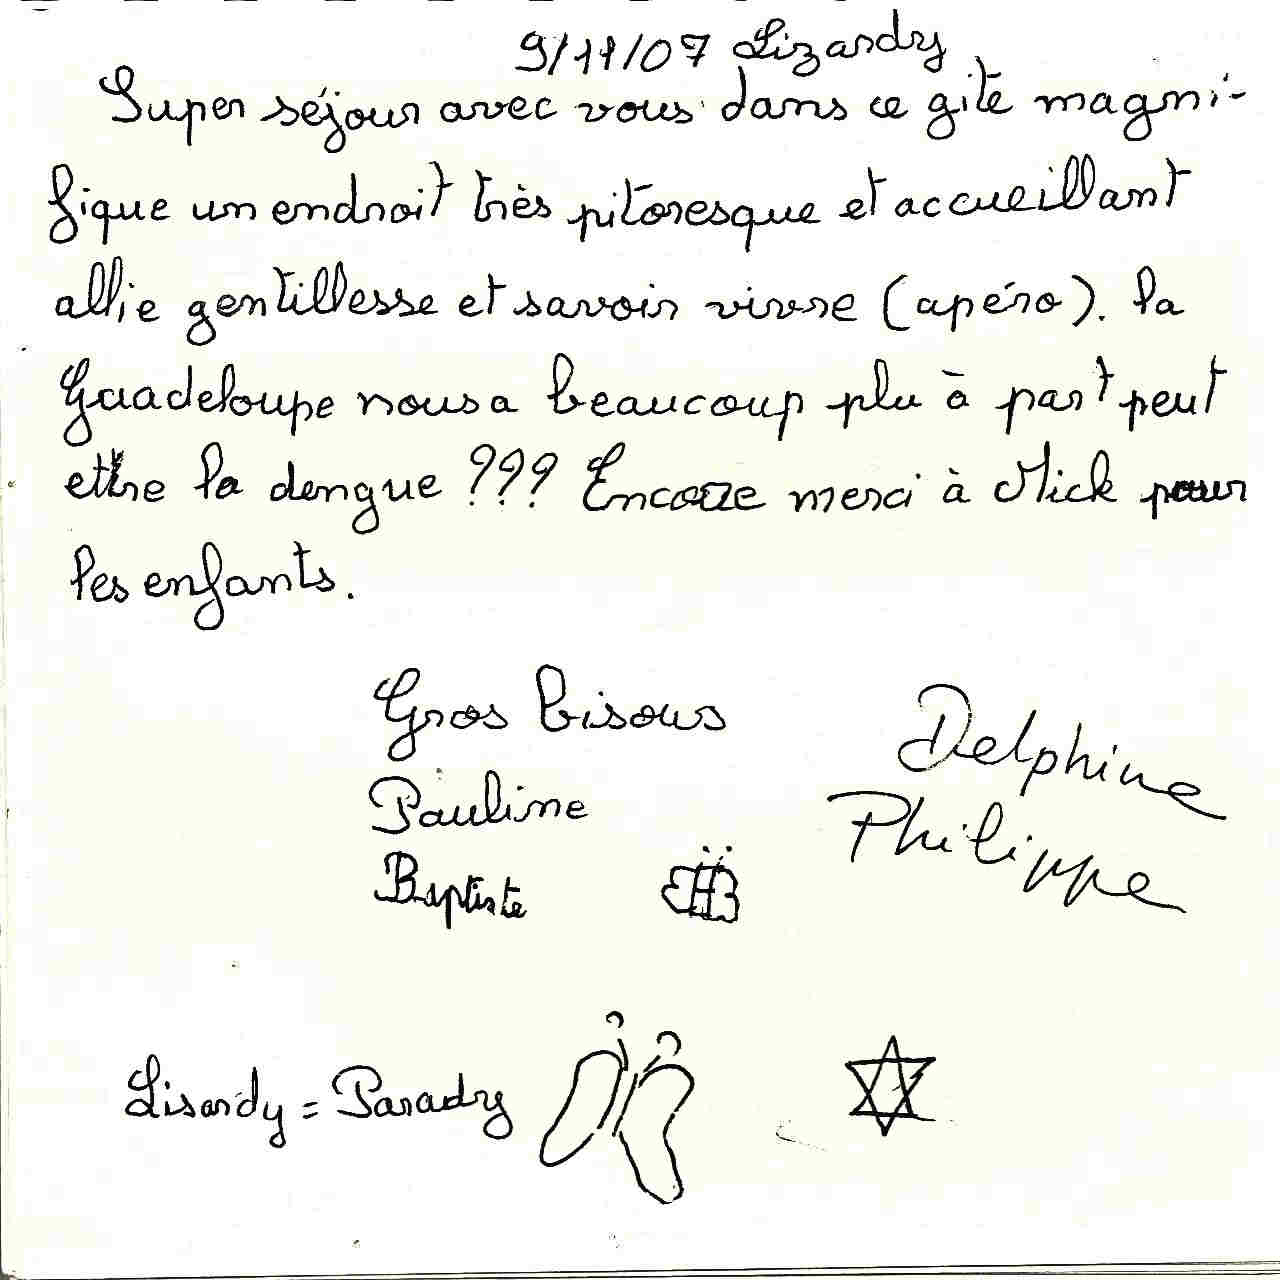 9/11/07 Lizardry
Super séjour avec vous dans ce gite magni-
fique un endroit très pitoresque et accueillant
allie gentillesse et savoir vivre (apéro). la
Guadeloupe nous a beaucoup plu à part peut
être la dengue ??? Encore merci à Mick pour
les enfants.
Gros bisous
Delphine
Pauline
Philippe
Baptiste
Lisardy = Paradry